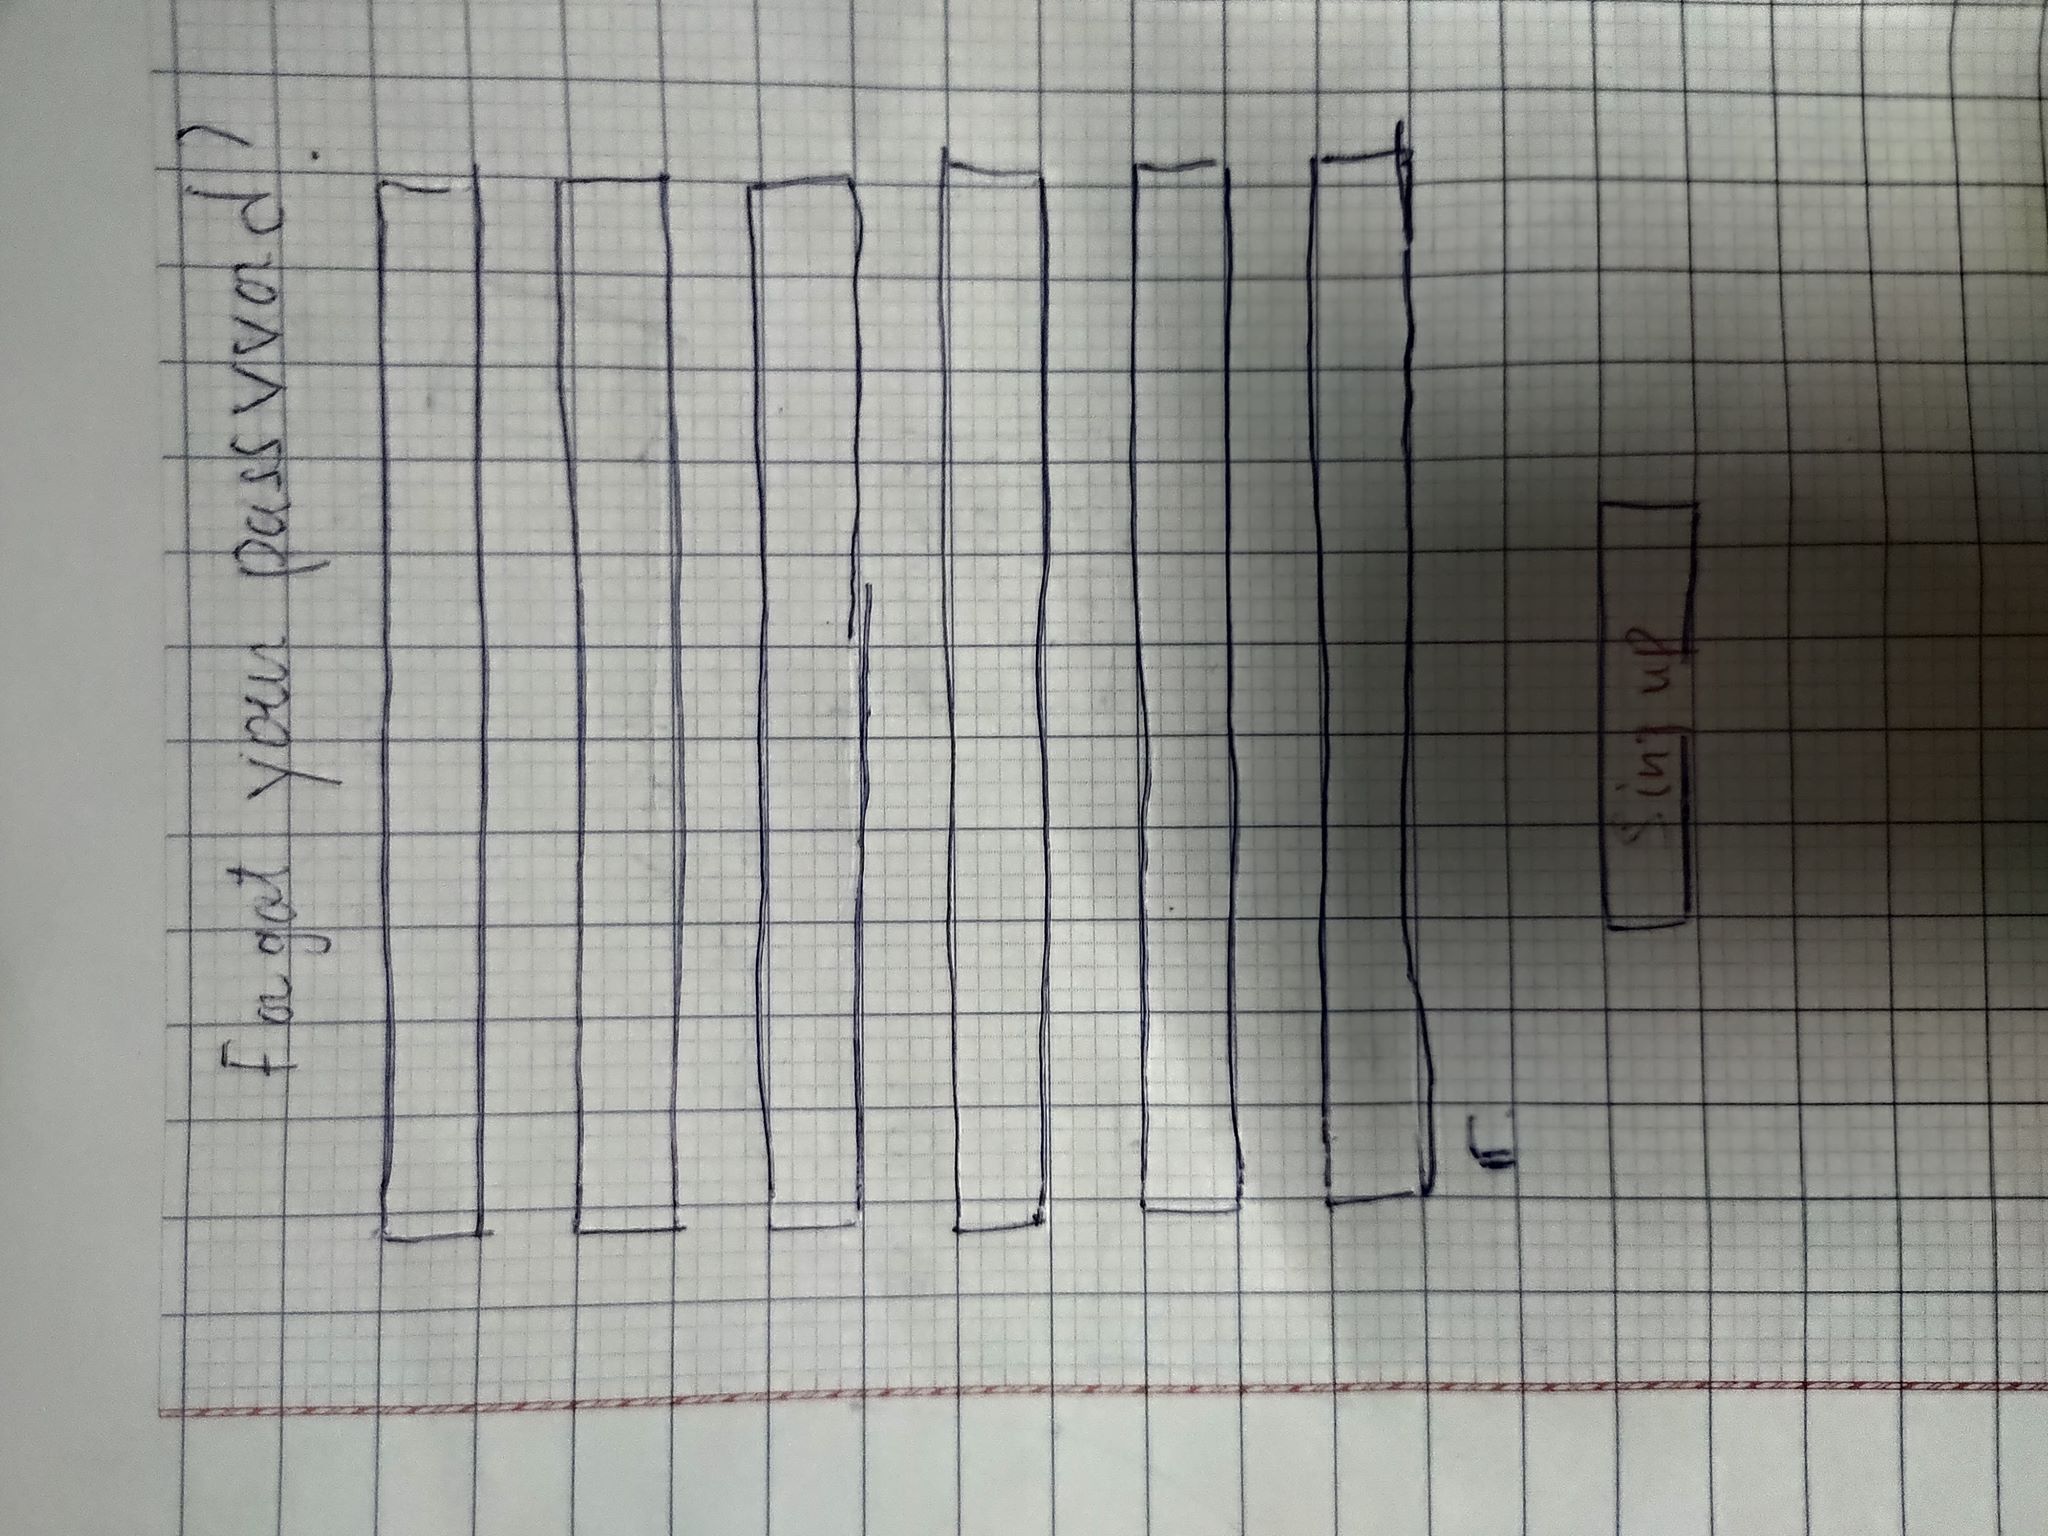 Forgot your password?
Sing up